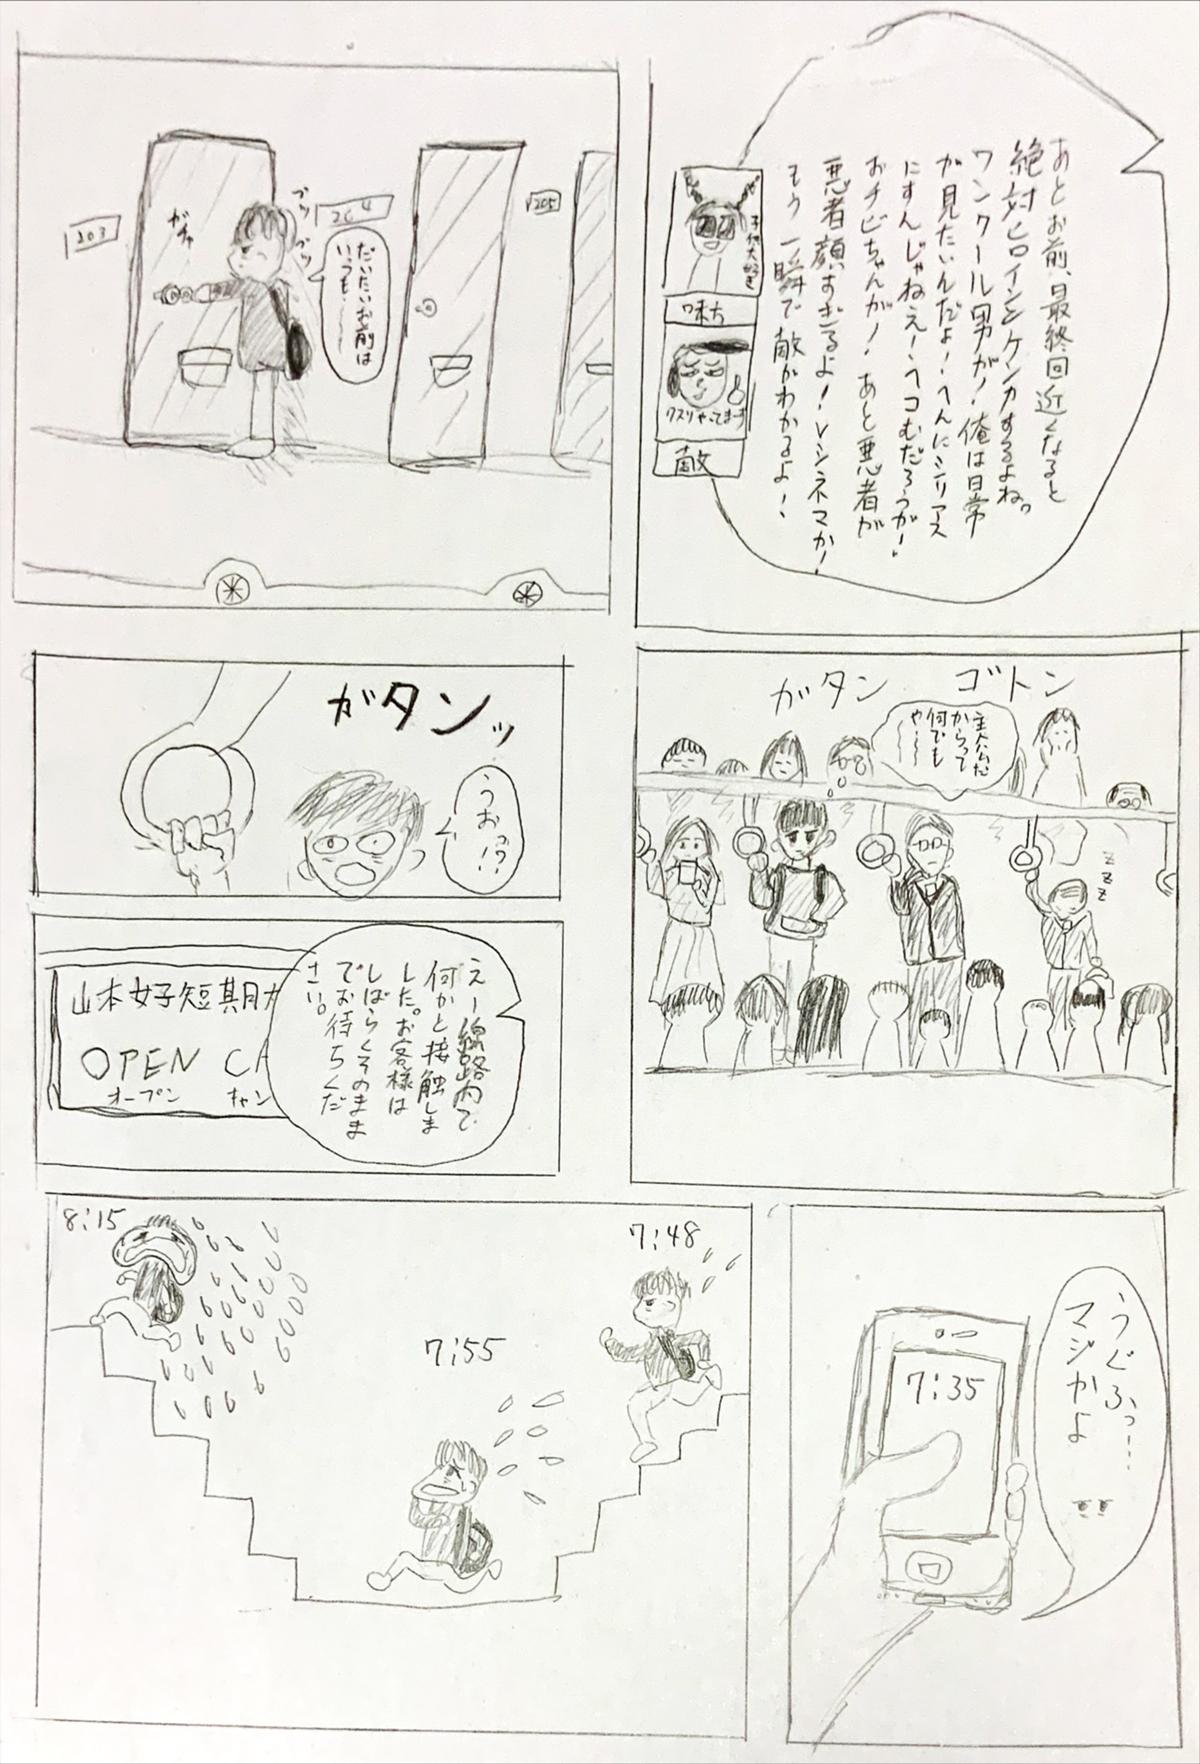 あとお前、最終回近くなると
絶対ヒロインとケンカするよね。
ワンクール男が！俺は日常
が見たいんだよ！へんにシリアス
にすんじゃねえ！ヘコむだろうが！
おチビちゃんが！あと悪者が
悪者顔すぎるよ！Vシネマか！
もう一瞬で敵がわかるよ！
子供大好き
味方
クスリやってまーす
敵
203
204
205
ガチャ
ブツ
ブツ
だいたいお前は
いつも〜〜
ガタン ゴトン
主人公だ
からって
何でも
や〜〜
zzz
ガタンッ
うおっ!?
えー線路内で
何かと接触しま
した。お客様は
しばらくそのまま
でお待ちくだ
さい。
山本女子短期大
OPEN CA
オープン キャン
うぐふっ…
マジかよ
7:35
7:48
7:55
8:15